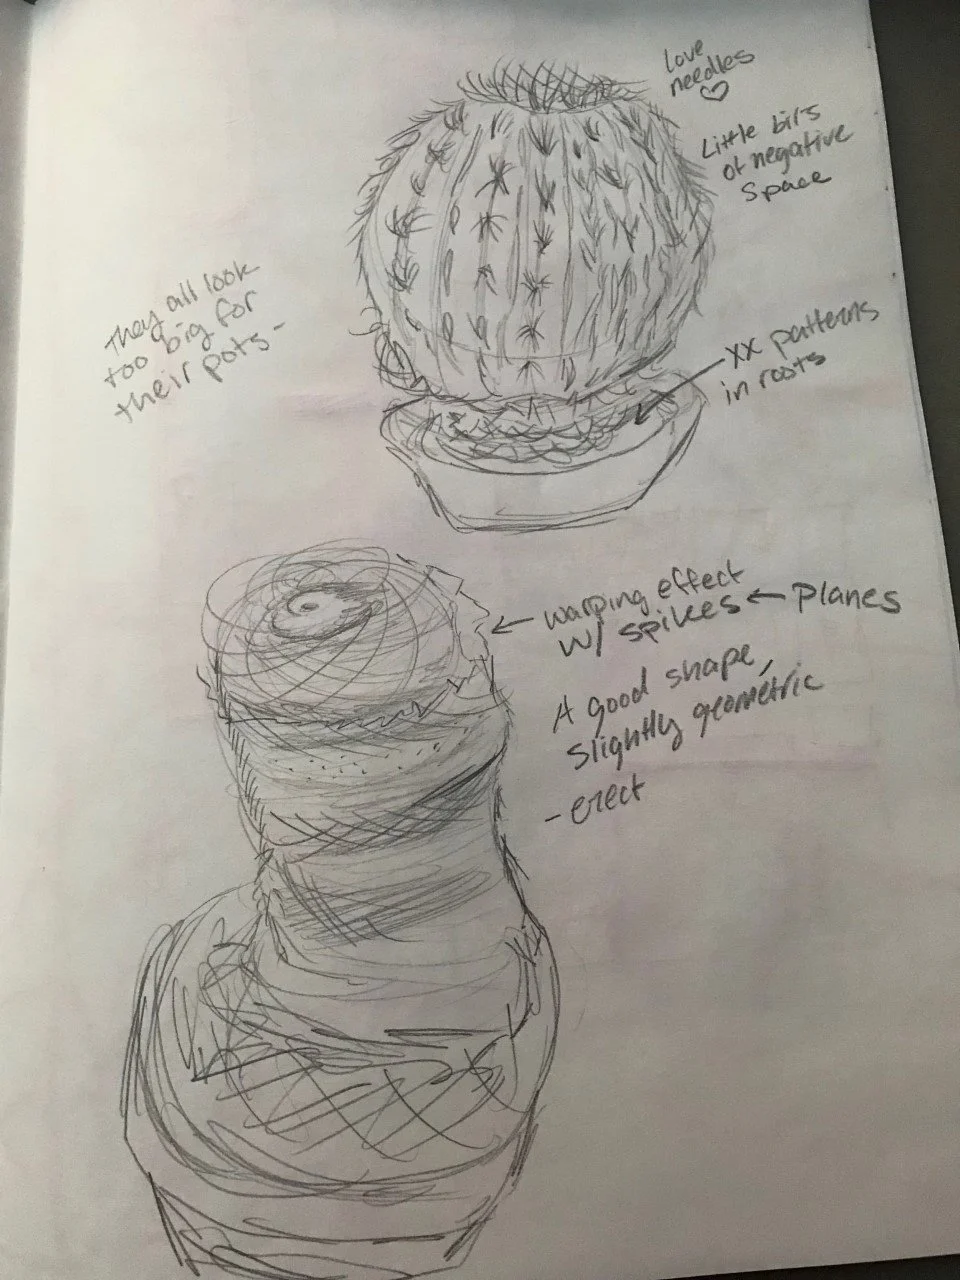 Love
needles
♡
Little bits
of negative
Space
They all look
too big for
their pots -
XX patterns
in roots
warping effect
w/ spikes ← Planes
A good shape,
slightly geometric
- erect